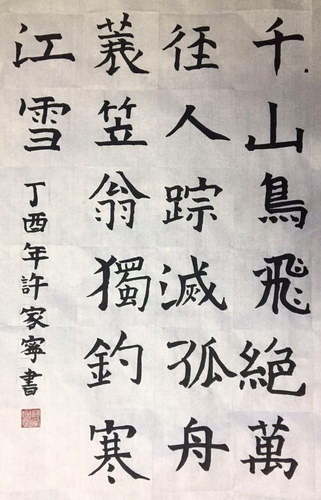 千山鳥飛絶萬
径人踪滅孤舟
蓑笠翁獨釣寒
江雪
丁酉年許家寧書